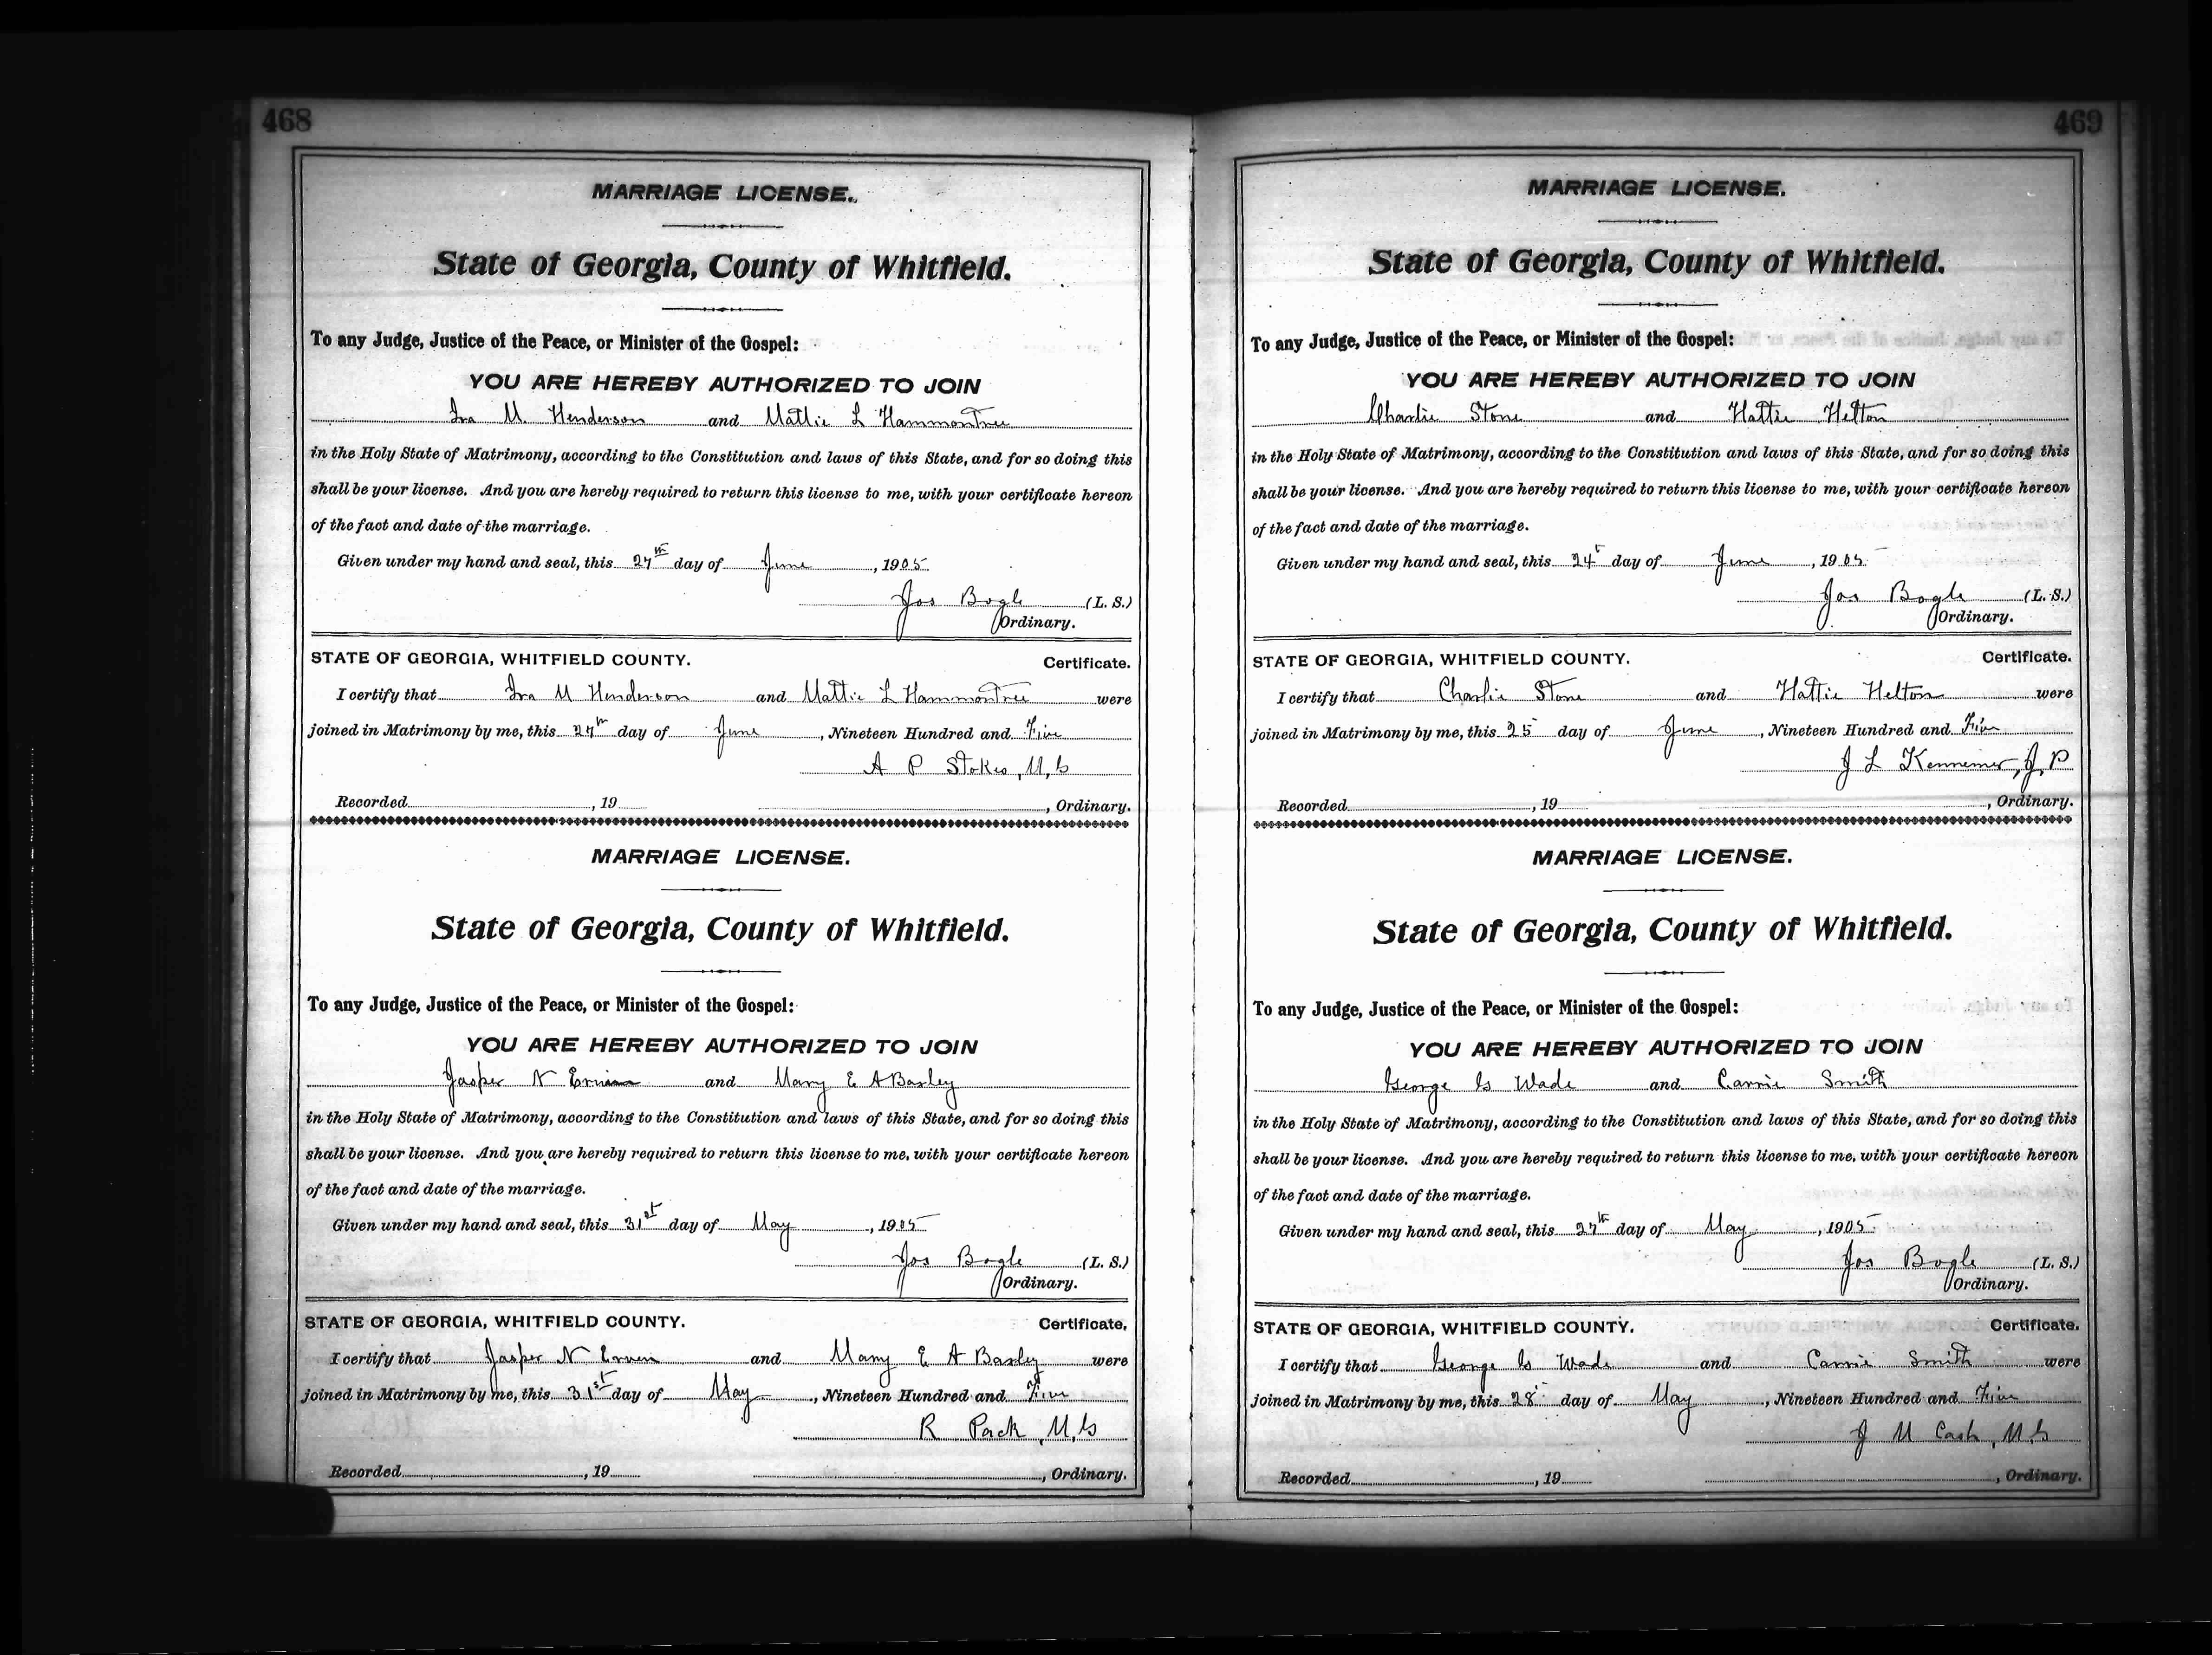 468
MARRIAGE LICENSE.
State of Georgia, County of Whitfield.
To any Judge, Justice of the Peace, or Minister of the Gospel:
YOU ARE HEREBY AUTHORIZED TO JOIN
Ira M. Henderson and Mattie L Hammontree
in the Holy State of Matrimony, according to the Constitution and laws of this State, and for so doing this
shall be your license. And you are hereby required to return this license to me, with your certificate hereon
of the fact and date of the marriage.
Given under my hand and seal, this 27th day of June, 1905
Jos Bogle (L. S.)
Ordinary.
STATE OF GEORGIA, WHITFIELD COUNTY. Certificate.
I certify that Ira M Henderson and Mattie L Hammontree were
joined in Matrimony by me, this 27th day of June, Nineteen Hundred and Five
A P Stokes, M, G
Recorded, 19, Ordinary.
MARRIAGE LICENSE.
State of Georgia, County of Whitfield.
To any Judge, Justice of the Peace, or Minister of the Gospel:
YOU ARE HEREBY AUTHORIZED TO JOIN
Jasper N and Mary E A Baxley
in the Holy State of Matrimony, according to the Constitution and laws of this State, and for so doing this
shall be your license. And you are hereby required to return this license to me, with your certificate hereon
of the fact and date of the marriage.
Given under my hand and seal, this 31st day of May, 1905
Jos Bogle (L. S.)
Ordinary.
STATE OF GEORGIA, WHITFIELD COUNTY. Certificate.
I certify that Jasper N and Mary E A Baxley were
joined in Matrimony by me, this 31st day of May, Nineteen Hundred and Five
R Pack, M, G
Recorded, 19, Ordinary.
469
MARRIAGE LICENSE.
State of Georgia, County of Whitfield.
To any Judge, Justice of the Peace, or Minister of the Gospel:
YOU ARE HEREBY AUTHORIZED TO JOIN
Charlie Stone and Hattie Helton
in the Holy State of Matrimony, according to the Constitution and laws of this State, and for so doing this
shall be your license. And you are hereby required to return this license to me, with your certificate hereon
of the fact and date of the marriage.
Given under my hand and seal, this 24 day of June, 1905
Jos Bogle (L. S.)
Ordinary.
STATE OF GEORGIA, WHITFIELD COUNTY. Certificate.
I certify that Charlie Stone and Hattie Helton were
joined in Matrimony by me, this 25 day of June, Nineteen Hundred and Five
J L Kennemer, J, P
Recorded, 19, Ordinary.
MARRIAGE LICENSE.
State of Georgia, County of Whitfield.
To any Judge, Justice of the Peace, or Minister of the Gospel:
YOU ARE HEREBY AUTHORIZED TO JOIN
George G Wade and Carrie Smith
in the Holy State of Matrimony, according to the Constitution and laws of this State, and for so doing this
shall be your license. And you are hereby required to return this license to me, with your certificate hereon
of the fact and date of the marriage.
Given under my hand and seal, this 27th day of May, 1905
Jos Bogle (L. S.)
Ordinary.
STATE OF GEORGIA, WHITFIELD COUNTY. Certificate.
I certify that George G Wade and Carrie Smith were
joined in Matrimony by me, this 28 day of May, Nineteen Hundred and Five
J M Cash, M, G
Recorded, 19, Ordinary.